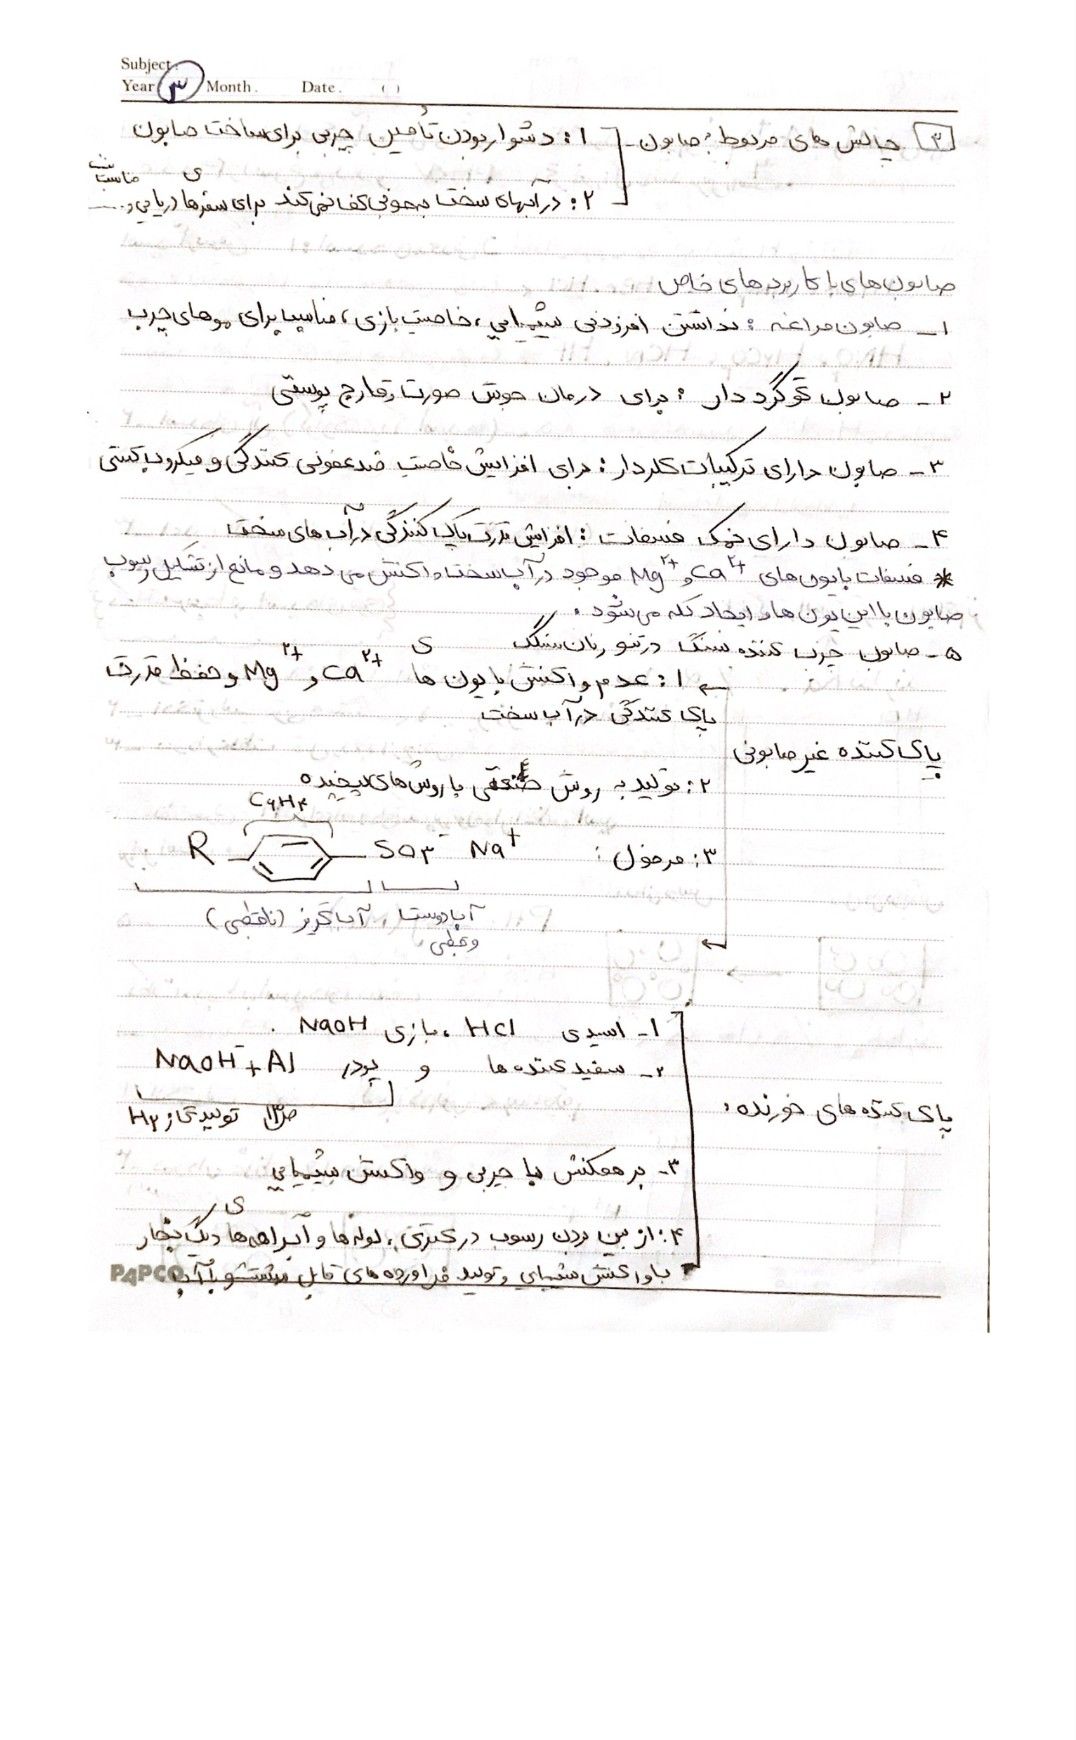 Subject:
Year ۳ Month. Date. ( )
۳ چالش های مربوط به صابون ۱: دشوار بودن تأمین چربی برای ساخت صابون
۲: در آبهای سخت به خوبی کف نمی کند برای سفرهای دریایی و ..... مناسب نیست
صابون های با کاربرد های خاص
۱- صابون مراغه : نداشتن افزودنی شیمیایی ، خاصیت بازی ، مناسب برای موهای چرب
۲- صابون گوگرد دار : برای درمان جوش صورت و قارچ پوستی
۳- صابون دارای ترکیبات کلردار : برای افزایش خاصیت ضد عفونی کنندگی و میکروب کشی
۴- صابون دارای نمک فسفات : افزایش قدرت پاک کنندگی در آب های سخت
* فسفات با یون های Ca²⁺ و Mg²⁺ موجود در آب سخت واکنش می دهد و مانع از تشکیل رسوب
صابون با این یون ها و ایجاد لکه می شود .
۵- صابون چرب کننده سنگ در تنور نان سنگکی
۱: عدم واکنش با یون ها Ca²⁺ و Mg²⁺ و حفظ قدرت
پاک کنندگی در آب سخت
پاک کننده غیر صابونی
۲: تولید به روش صنعتی با روش های پیچیده
C₆H₄
۳: فرمول : R SO₃⁻ Na⁺
آب دوست آب گریز (ناقطبی)
و قطبی
۱- اسیدی HCl ، بازی NaOH .
۲- سفید کننده ها و پودر NaOH + Al
پاک کننده های خورنده :
ص۱۳ تولید گاز H₂
۳- برهمکنش با چربی و واکنش شیمیایی
۴: از بین بردن رسوب در کتری ، لوله ها و آبراهه های دیگ بخار
با واکنش شیمیایی و تولید فرآورده های قابل شستشو با آب
PAPCO